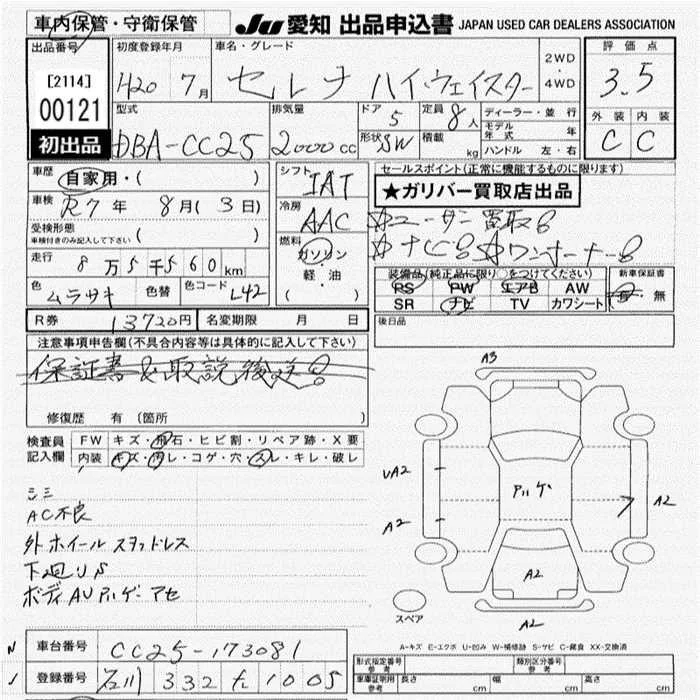 車内保管・守衛保管
JU 愛知 出品申込書 JAPAN USED CAR DEALERS ASSOCIATION
出品番号 初度登録年月 車名・グレード 評価点
[2114] 00121 H20 7月 セレナ ハイウェイスター 2WD・4WD 3.5
初出品 型式 排気量 ドア 定員 ディーラー・並行 外装 内装
DBA-CC25 2000cc 5 8人 モデル年式 年 C C
形状 SW 積載 kg ハンドル 左・右
車歴 自家用・( ) シフト IAT セールスポイント(正常に機能するものに限ります)
★ガリバー買取店出品
車検 R7年 8月(3日) 冷房 AAC
受検形態 車検付きのみ記入して下さい ( )
燃料 ガソリン・軽・油 ( )
走行 8万5千560km
色 ムラサキ 色替 色コード L42
装備品(純正品に限り○をつけてください) 新車保証書
PS PW エアB AW 有・無
SR ナビ TV カワシート
R券 13720円 名変期限 月 日
後日品
注意事項申告欄(不具合内容等は具体的に記入して下さい)
保証書&取説後送
修復歴 有 (箇所 )
検査員記入欄 FW キズ・飛石・ヒビ割・リペア跡・X要
内装 キズ・汚レ・コゲ・穴・スレ・キレ・破レ
シミ
AC不良
外ホイール スタッドレス
下廻りS
ボディAUアルゲーアセ
A3
UA2
アルゲ
A2
A2
A2
スペア
A2
A-キズ E-エクボ U-凹み W-補修跡 S-サビ C-腐食 XX-交換済
車台番号 CC25-173081
登録番号 石川 332 た 1005
形式指定番号 参考 類別区分番号 参考
車庫証明用 参考 長さ cm 幅 cm 高さ cm